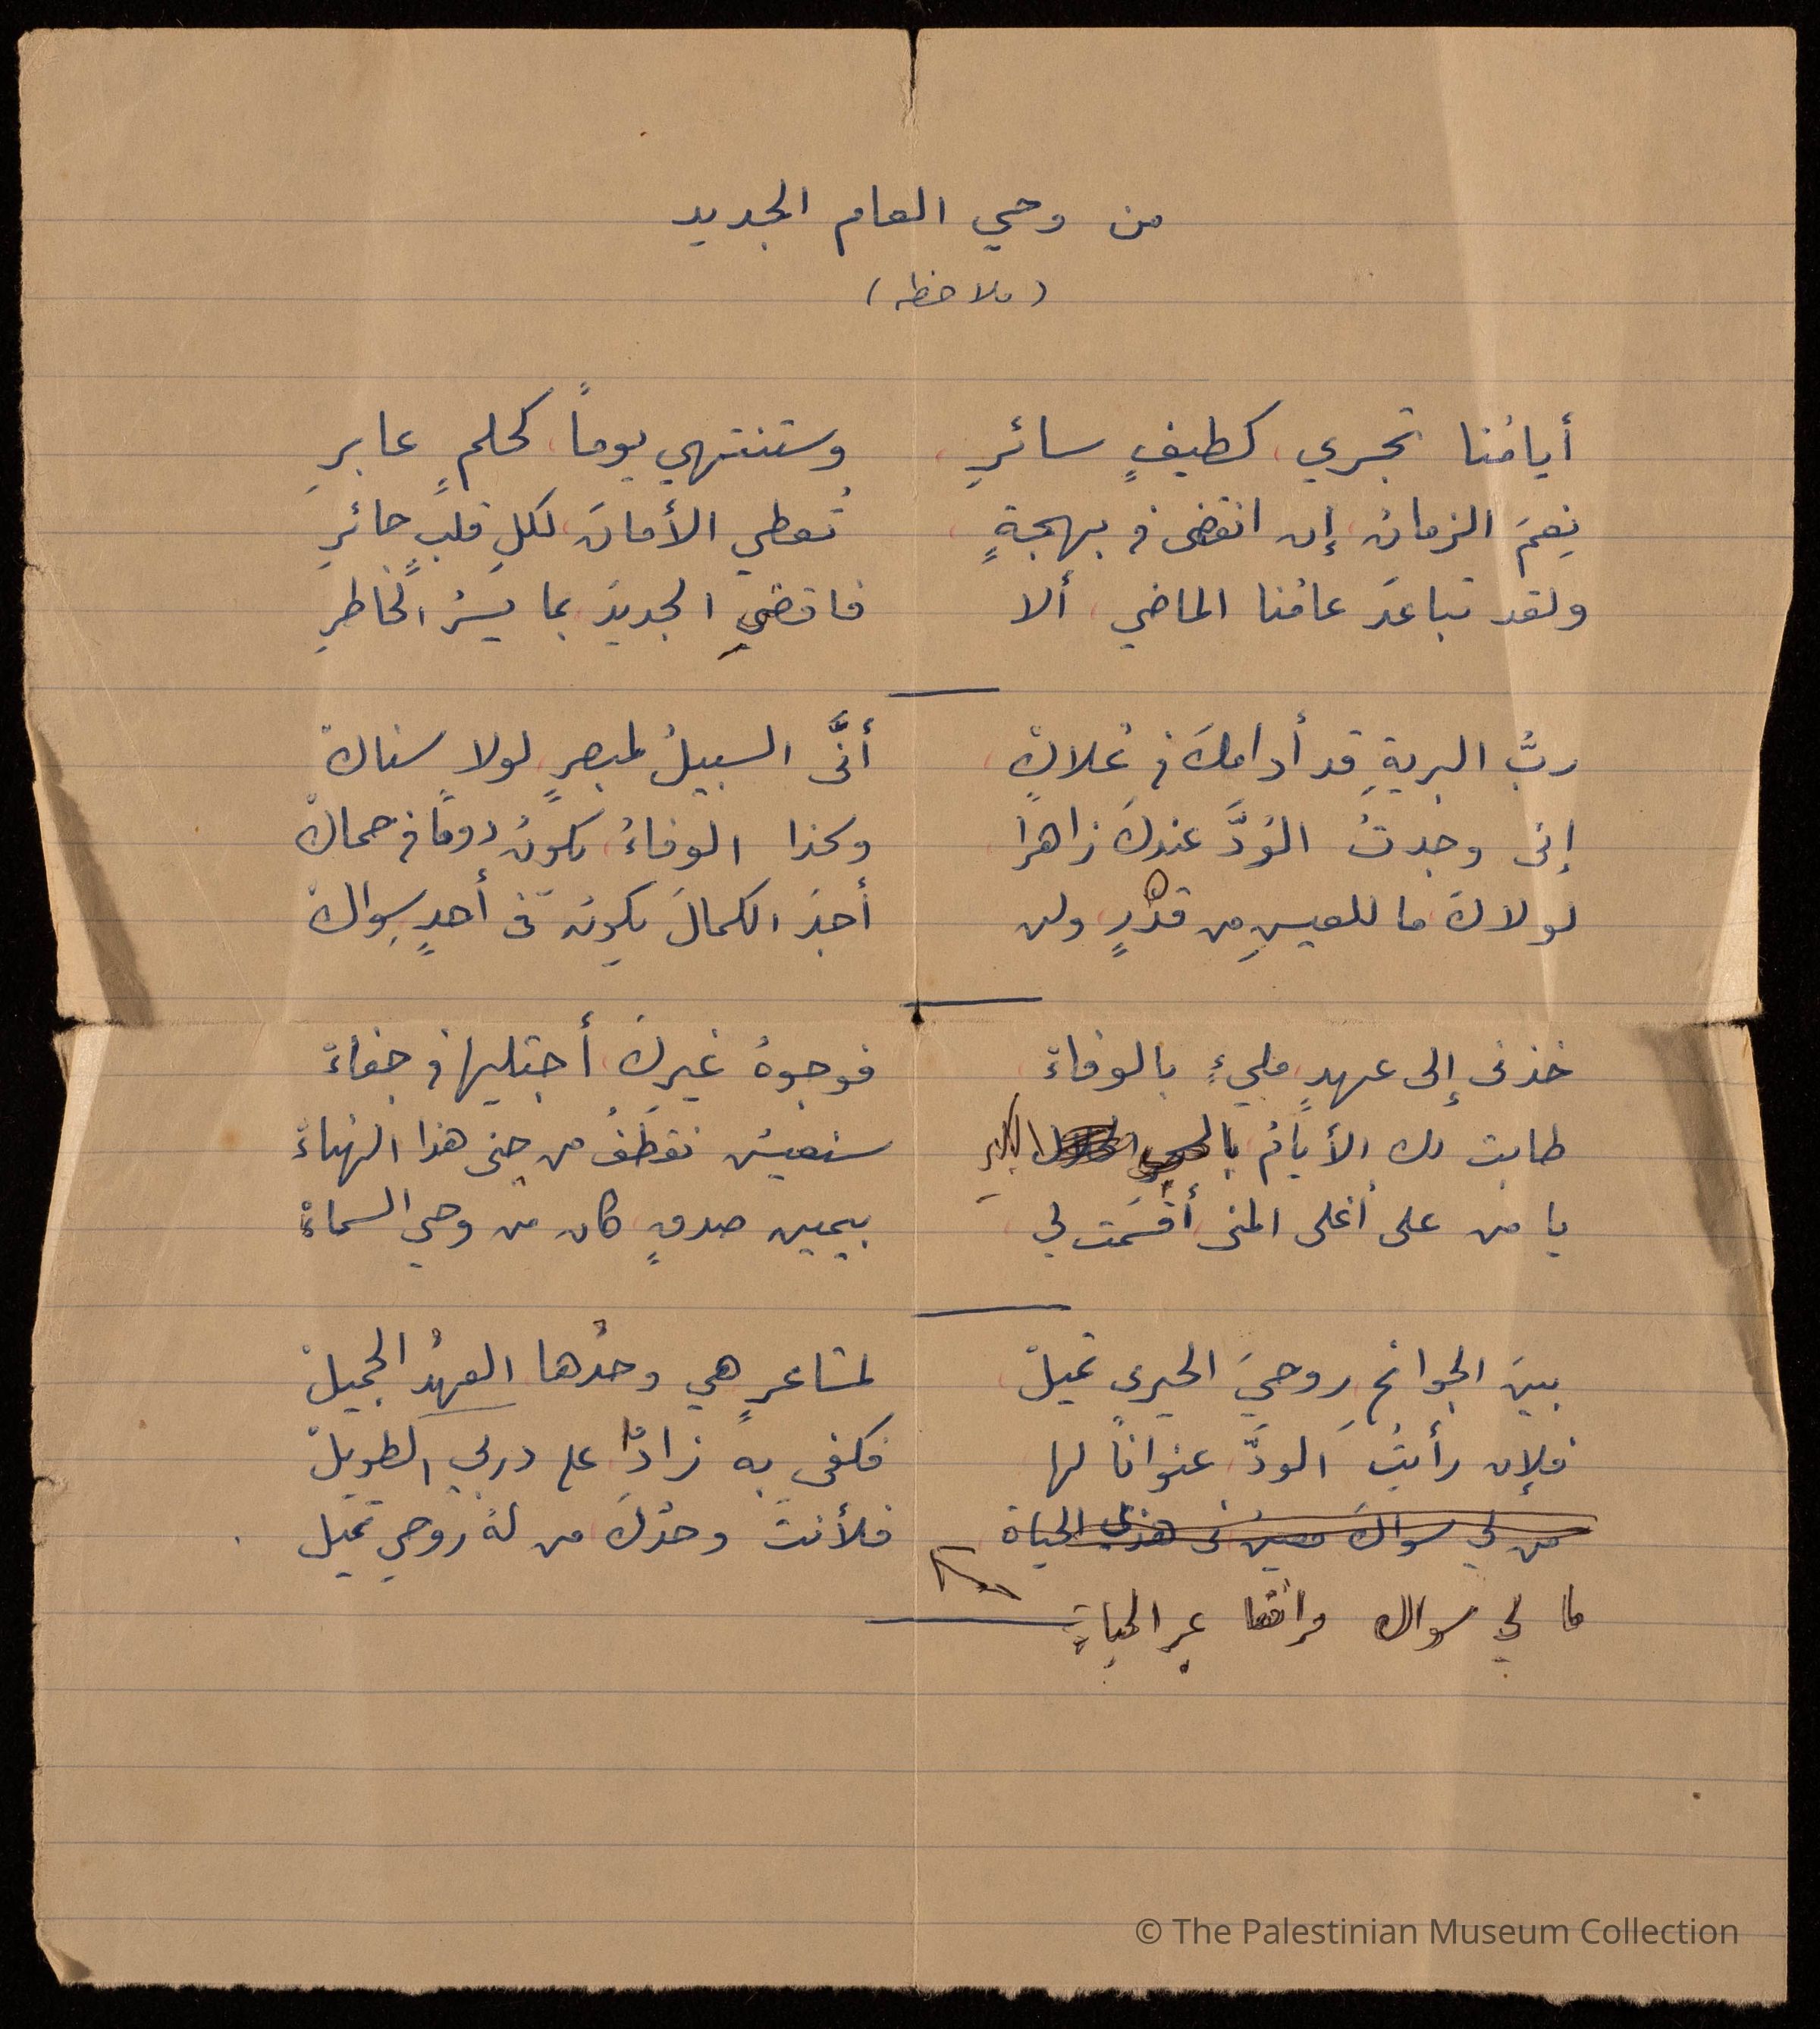 من وحي العام الجديد
(ملاحظه)
أيامُنا تجري، كطيفٍ سائرِ، وستنتهي يوماً، كحلمٍ عابرِ
نِعمَ الزمانُ، إن انقضى في بهجةٍ، تُعطي الأمانَ، لكلِ قلبٍ حائرِ
ولقد تباعدَ عامُنا الماضي، ألا فاقضي الجديدَ، بما يسرُ الخاطرِ
ربُّ البريةِ قد أدامكَ في عُلاكْ، أنَّى السبيلُ لمبصرٍ، لولا سناكْ
إني وجدتُ الوُدَّ عندكَ زاهراً، وكذا الوفاءُ، يكونُ دوماً في حماكْ
لولاكَ، ما للعيشِ من قدْرٍ، ولن أجدَ الكمالَ يكونُ في أحدٍ سِواكْ
خذني إلى عهدٍ، مليءٍ بالوفاءْ، فوجوهُ غيرِكَ، أجتليها في جفاءْ
طابت لك الأيامُ سنعيش نقطفُ من جنى هذا الهناءْ
يا من على أغلى المنى، أقسَمت لي، بيمين صدقٍ، كان من وحي السماءْ
بينَ الجوانحِ، روحيَ الحيرى تميلْ لمشاعرٍ هي وحدُها العهدُ الجميلْ
فلإن رأيتُ الودَّ، عنواناً لها فكفى بهِ زاداً، على دربي الطويلْ
من لي سواكَ معينُ في هذي الحياة فلأنتَ وحدُكَ من لهُ روحي تميل.
ما لي سواك مرافقا عبر الحياةِ
© The Palestinian Museum Collection